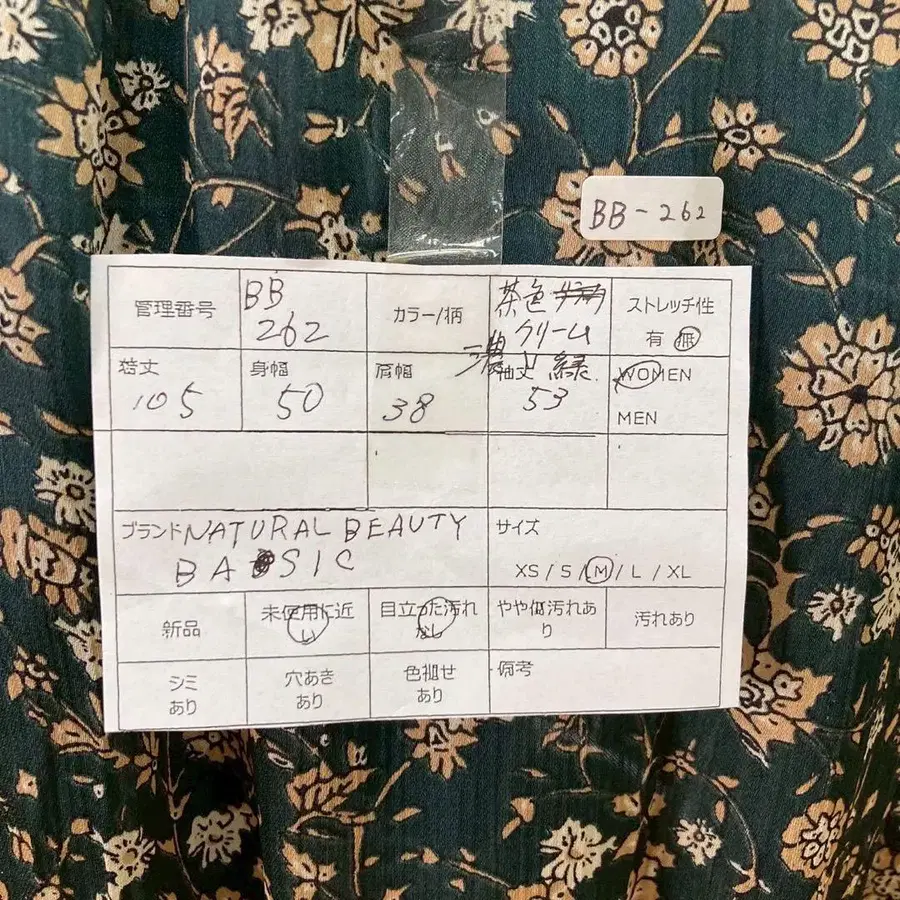 BB-262
管理番号
BB
262
カラー/柄
茶色
クリーム
濃い緑
ストレッチ性
有 無
着丈
105
身幅
50
肩幅
38
袖丈
53
WOMEN
MEN
ブランド NATURAL BEAUTY
BASIC
サイズ
XS / S / M / L / XL
新品
未使用に近
い
目立った汚れ
なし
やや傷汚れあ
り
汚れあり
シミ
あり
穴あき
あり
色褪せ
あり
備考